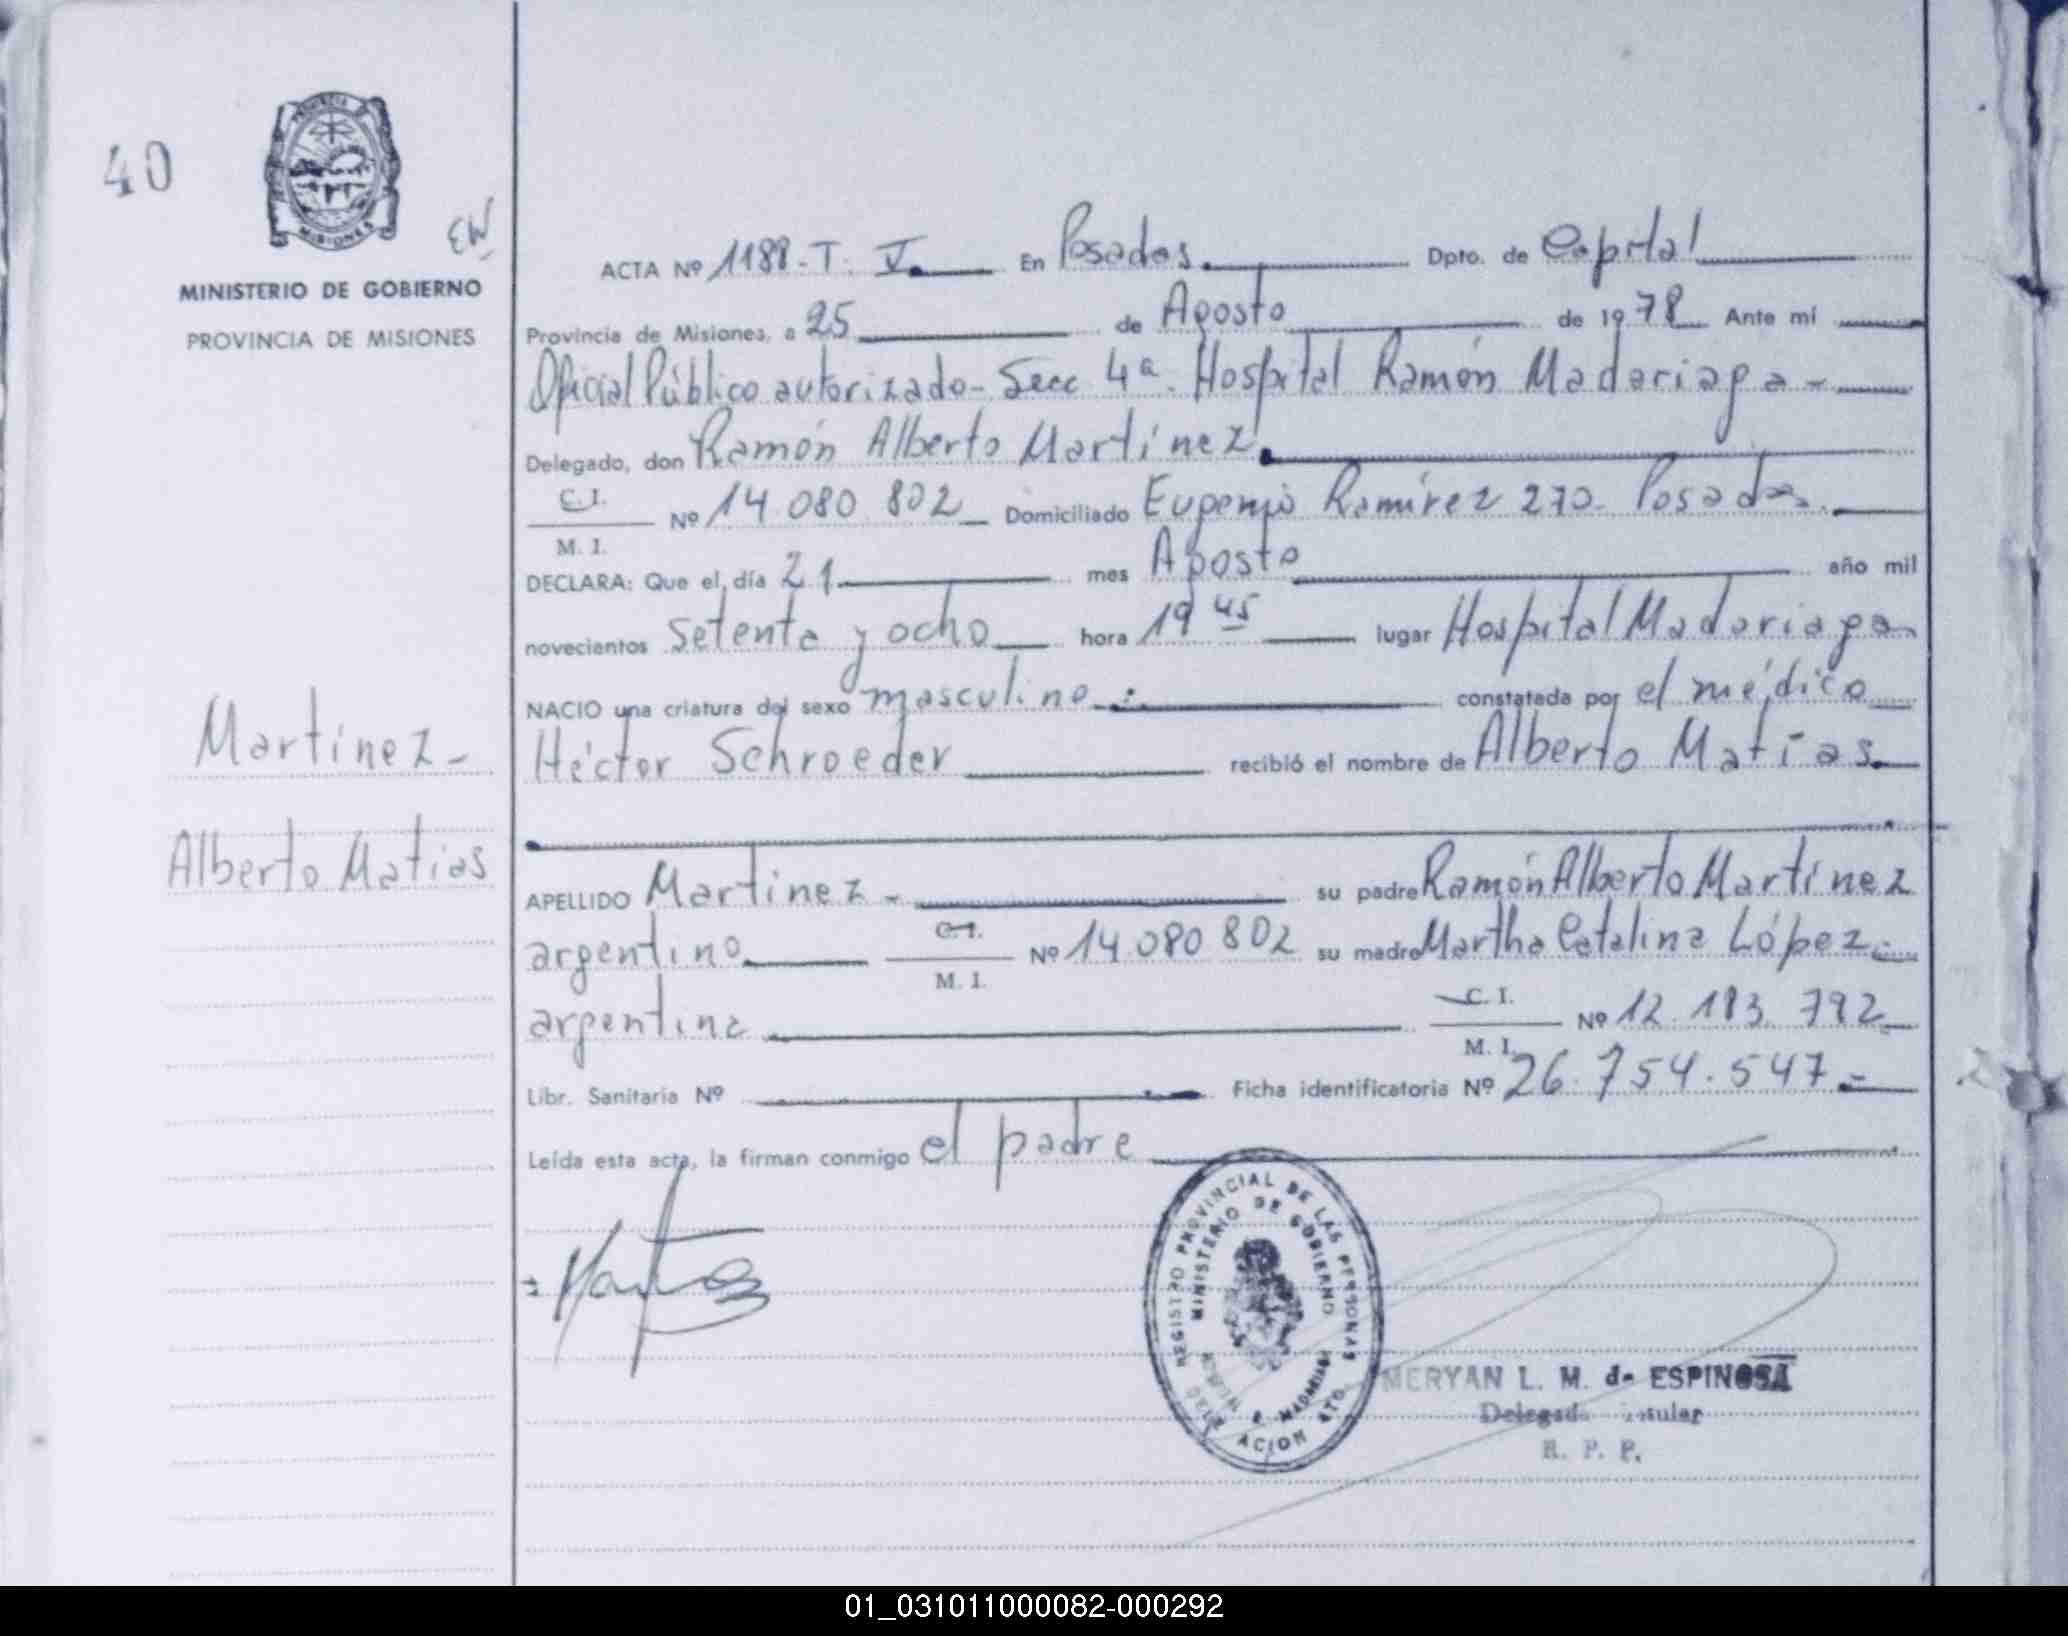 40
PROVINCIA DE
MISIONES
EW
MINISTERIO DE GOBIERNO
PROVINCIA DE MISIONES
ACTA Nº 1188-T. V. En Posadas. Dpto. de Capital
Provincia de Misiones, a 25 de Agosto de 1978 Ante mí
Oficial Público autorizado - Secc 4ª. Hospital Ramón Madariaga -
Delegado, don Ramón Alberto Martínez.
C. I.
Nº 14.080.802 Domiciliado Eugenio Ramírez 270 - Posadas.
M. I.
DECLARA: Que el día 21 mes Agosto año mil
novecientos setenta y ocho hora 19 45 lugar Hospital Madariaga
NACIO una criatura del sexo masculino.: constatada por el médico
Héctor Schroeder recibió el nombre de Alberto Matías.
Martínez -
Alberto Matías
APELLIDO Martínez - su padre Ramón Alberto Martínez
argentino C. I. Nº 14.080.802 su madre Martha Catalina López -
M. I.
argentina C. I. Nº 12.183.792
M. I.
Libr. Sanitaria Nº Ficha identificatoria Nº 26.754.547.-
Leída esta acta, la firman conmigo el padre
REGISTRO PROVINCIAL DE LAS PERSONAS
MINISTERIO DE GOBIERNO
MERYAN L. M. de ESPINOSA
R. P. P.
01_031011000082-000292